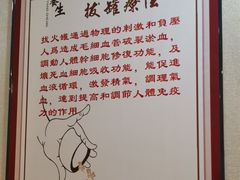 養生 拔罐療法
拔火罐通過物理的刺激和負壓
人爲造成毛細血管破裂淤血，
調動人體幹細胞修復功能，及
壞死血細胞吸收功能，能促進
血液循環，激發精氣，調理氣
血，達到提高和調節人體免疫
力的作用